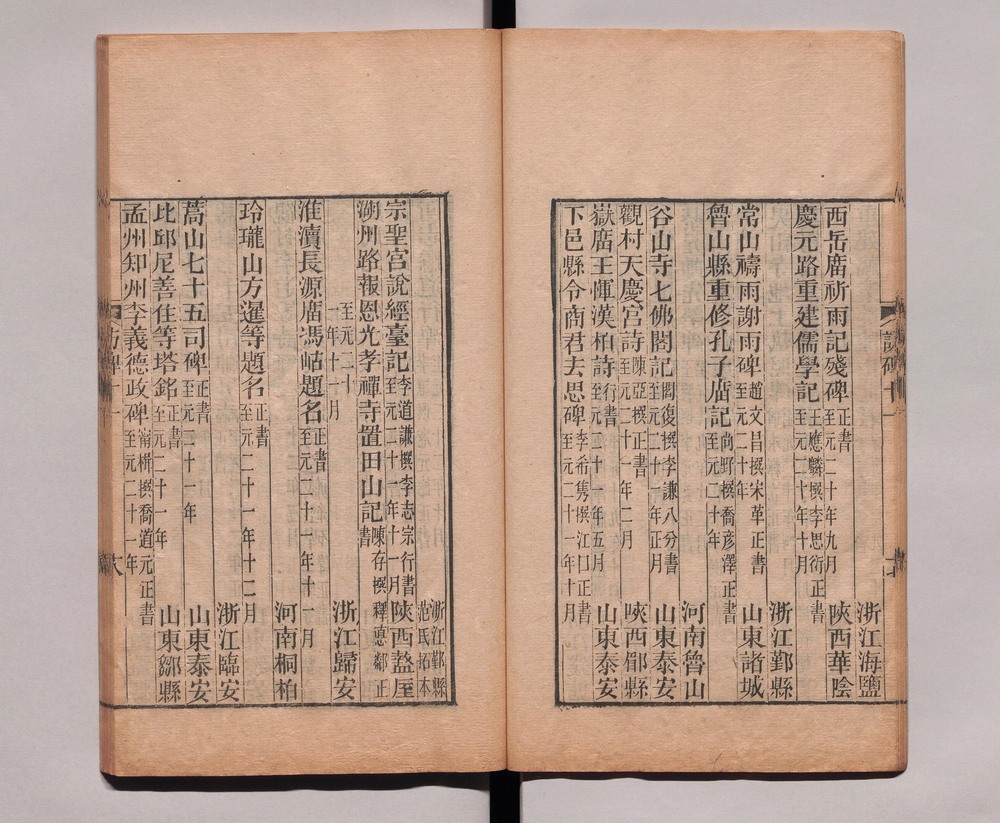 浙江海鹽
西岳廟祈雨記殘碑正書至元二十年九月 陝西華陰
慶元路重建儒學記王應麟撰李思衍正書至元二十年十月 浙江鄞縣
常山禱雨謝雨碑趙文昌撰宋革正書至元二十年 山東諸城
魯山縣重修孔子廟記尚野撰喬彥澤正書至元二十年 河南魯山
谷山寺七佛閣記閻復撰李謙八分書至元二十一年正月 山東泰安
觀村天慶宮詩陳亞撰正書至元二十一年二月 陝西郿縣
嶽廟王惲漢柏詩行書至元二十一年五月 山東泰安
下邑縣令商君去思碑李希雋撰江口正書至元二十一年十月
浙江鄞縣范氏拓本
宗聖宮說經臺記李道謙撰李志宗行書至元二十一年十一月 陝西盩厔
湖州路報恩光孝禪寺置田山記陳存撰釋惪鄰正書
至元二十一年十一月 浙江歸安
淮瀆長源廟馮岵題名正書至元二十一年十一月 河南桐柏
玲瓏山方暹等題名正書至元二十一年十二月 浙江臨安
蒿山七十五司碑正書至元二十一年 山東泰安
比邱尼善住等塔銘正書至元二十一年 山東鄒縣
孟州知州李義德政碑甯楫撰喬道元正書至元二十一年
訪碑十一
訪碑十一